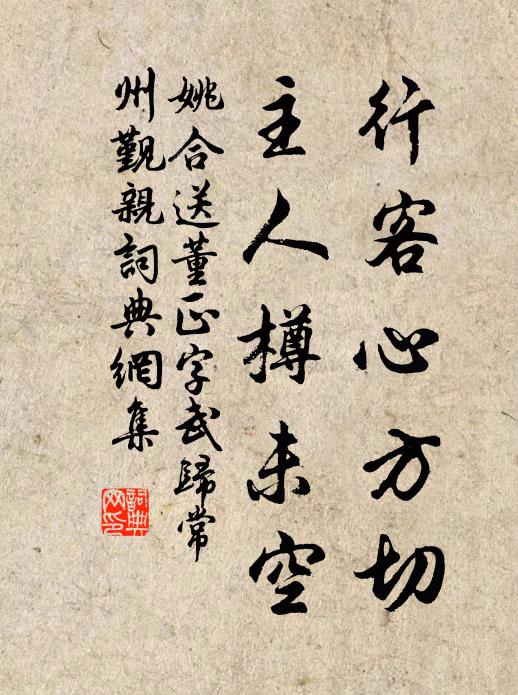 行客心方切
主人樽未空
姚合送董正字武歸常
州覲親詞典網集
詞典网印